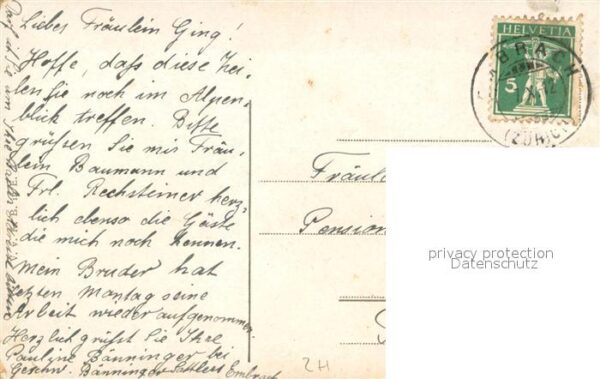 Liebes Fräulein Ging!
Hoffe, dass diese Zei-
len Sie noch im Alpen-
blick treffen. Bitte
grüßen Sie mir Fräu-
lein Baumann und
Frl. Rechsteiner herz-
lich ebenso die Gäste
die mich noch kennen.
Mein Bruder hat
letzten Montag seine
Arbeit wieder aufgenommen.
Herzlich grüßt Sie Ihre
Pauline Bänninger bei
Geschw. Bänninger Sattlers Embrach
HELVETIA
5
EMBRACH
(ZÜRICH)
Fräule
Pension
privacy protection
Datenschutz
ZH